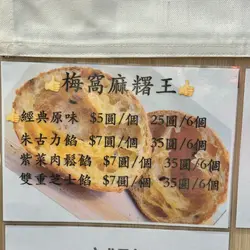 梅窩麻糬王
經典原味 $5圓/個 25圓/6個
朱古力餡 $7圓/個 35圓/6個
紫菜肉鬆餡 $7圓/個 35圓/6個
雙重芝士餡 $7圓/個 35圓/6個